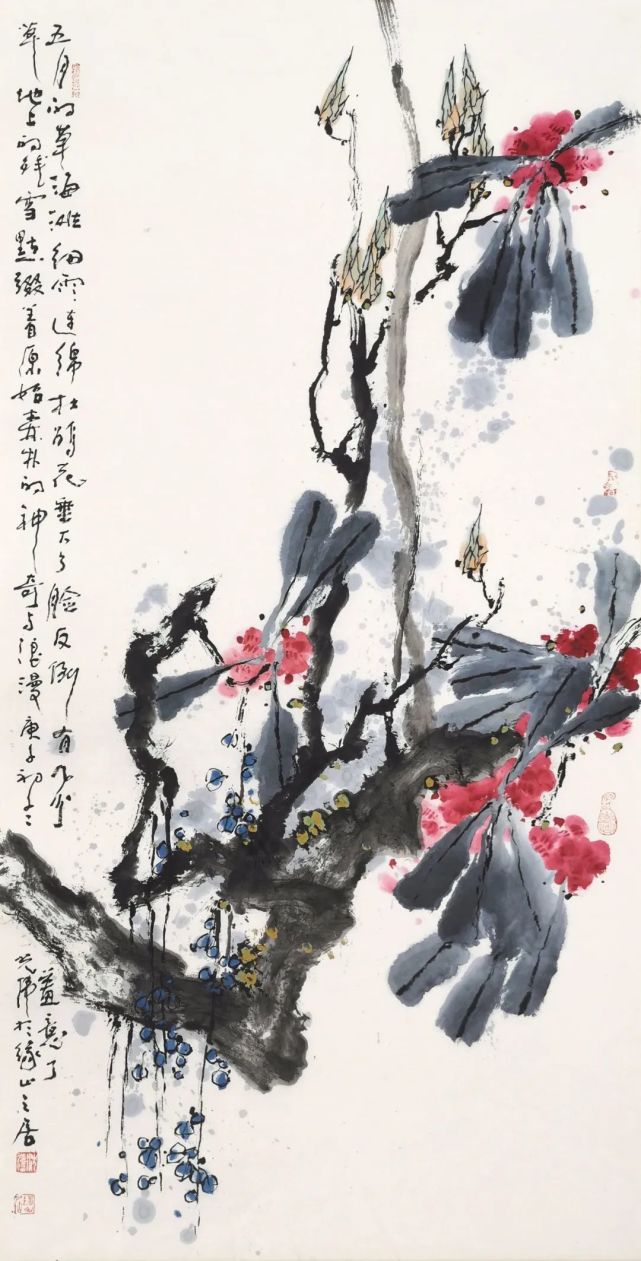 五月的草海滩细雨连绵杜鹃花垂下了脸反倒有几分
羞意了
草地上的残雪點缀着原始森林的神奇与浪漫庚子初冬
於缘山之居